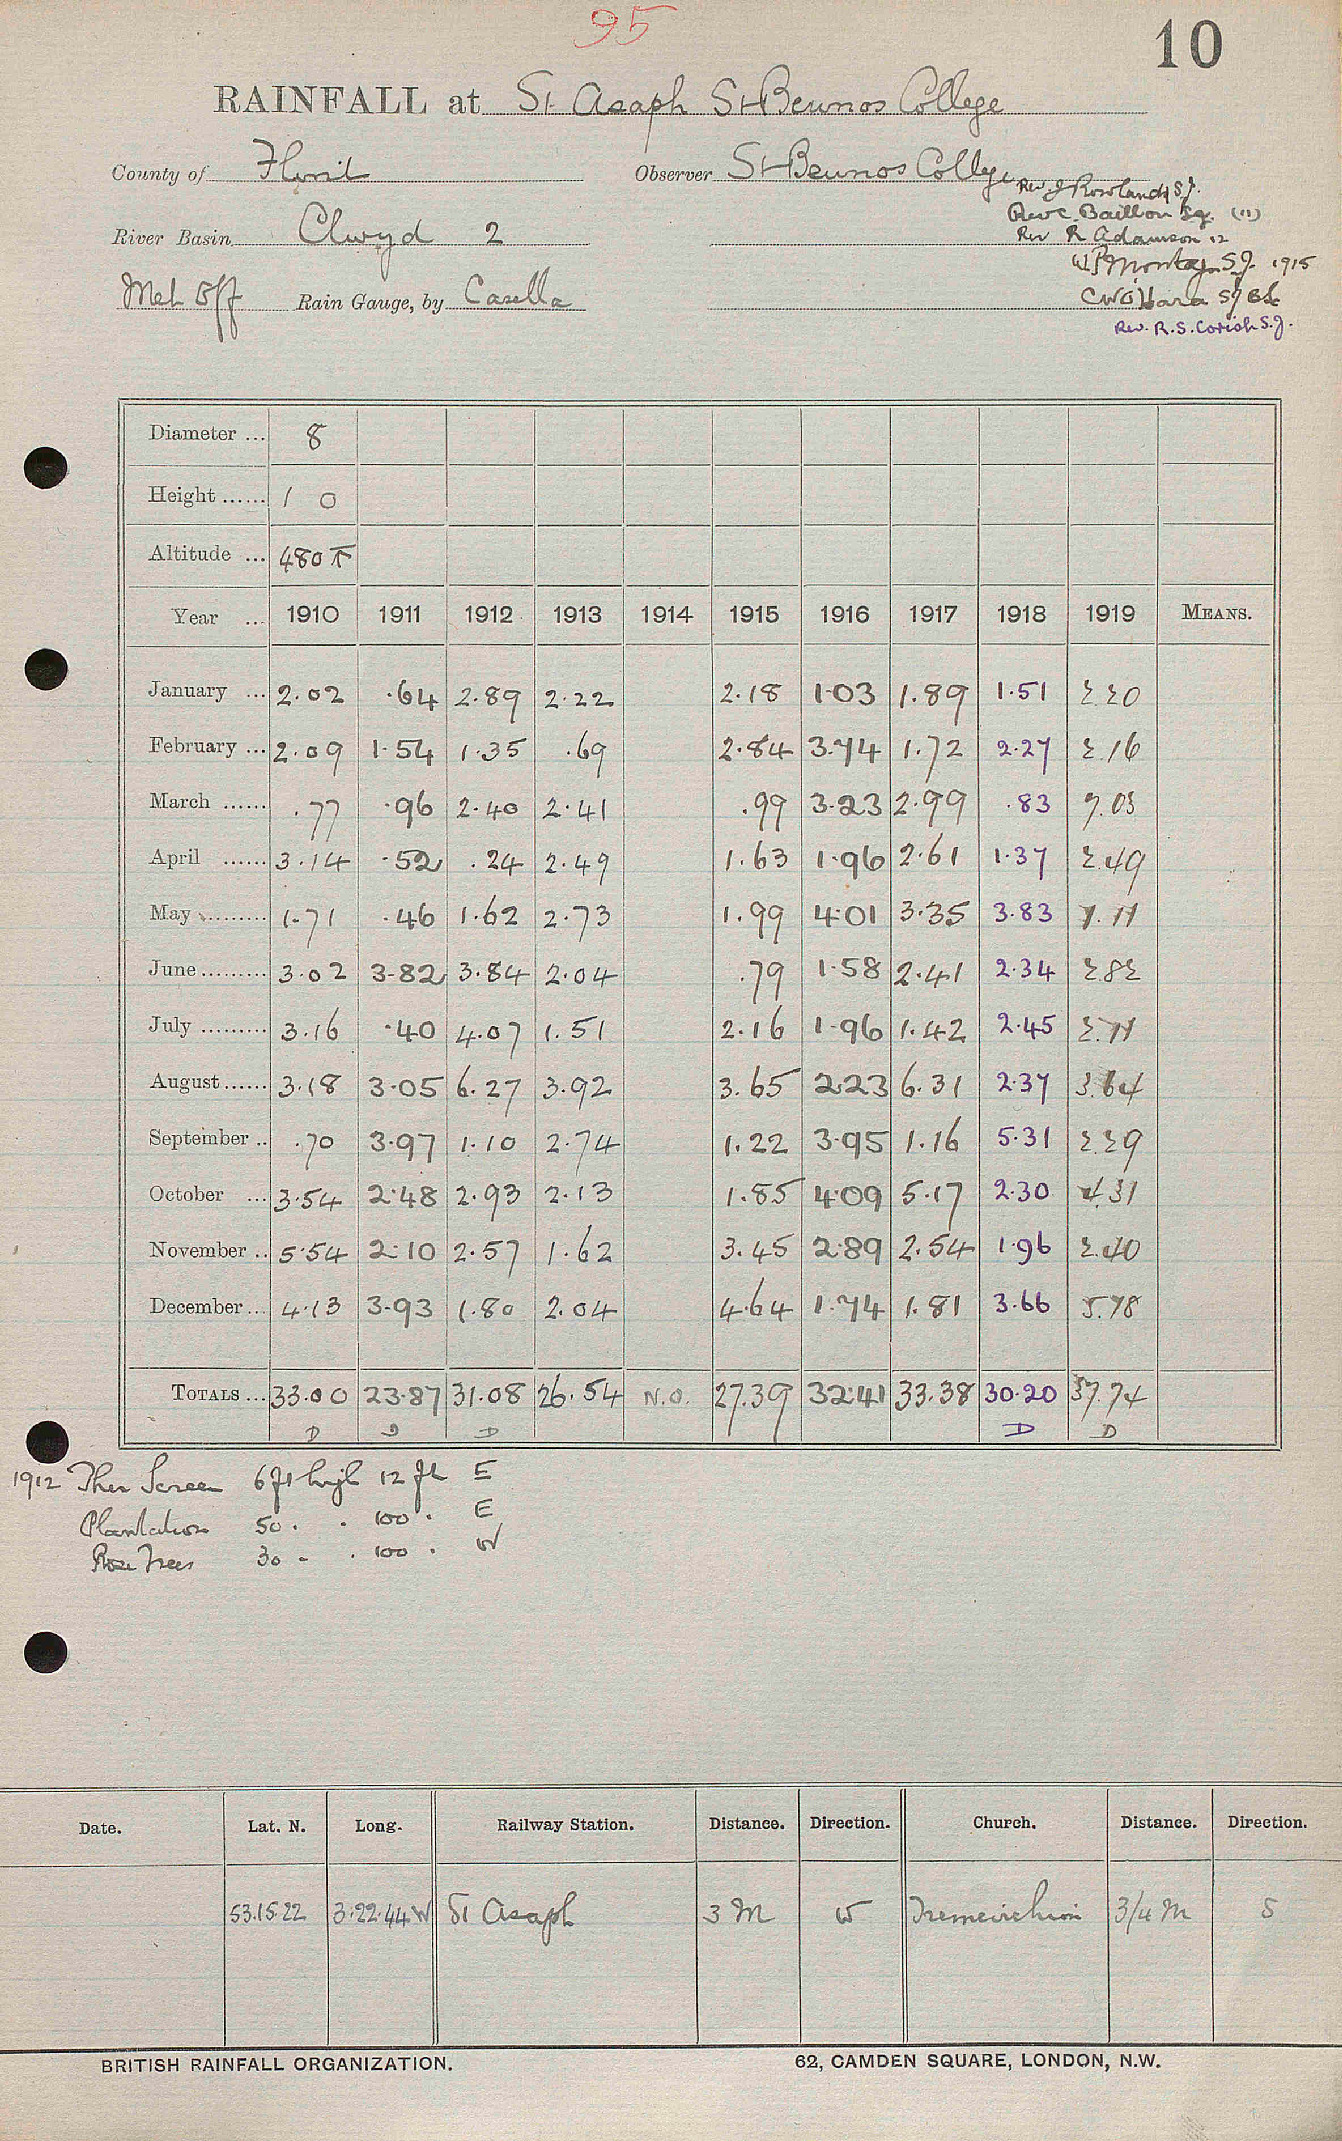 95
10
RAINFALL at St Asaph St Beunos College
County of Flint Observer St Beunos College
Rev. J Rowland S.J.
Rev C. Baillon (11)
River Basin Clwyd 2 Rev R Adamson 12
S.J. 1915
Met Off Rain Gauge, by Casella C W O'Hara SJ
Rev. R. S. Corish S.J.
Diameter ... 8
Height ...... 1 0
Altitude ... 480 T
Year ... 1910 1911 1912 1913 1914 1915 1916 1917 1918 1919 MEANS.
January ... 2.02 .64 2.89 2.22 2.18 1.03 1.89 1.51 2.20
February ... 2.09 1.54 1.35 .69 2.84 3.74 1.72 2.27 2.16
March ...... .77 .96 2.40 2.41 .99 3.23 2.99 .83
April ...... 3.14 .52 .24 2.49 1.63 1.96 2.61 1.37 2.49
May ......... 1.71 .46 1.62 2.73 1.99 4.01 3.35 3.83
June ......... 3.02 3.82 3.84 2.04 .79 1.58 2.41 2.34 2.82
July ......... 3.16 .40 4.07 1.51 2.16 1.96 1.42 2.45
August ...... 3.18 3.05 6.27 3.92 3.65 2.23 6.31 2.37 3.64
September .. .70 3.97 1.10 2.74 1.22 3.95 1.16 5.31 2.29
October ... 3.54 2.48 2.93 2.13 1.85 4.09 5.17 2.30 4.31
November .. 5.54 2.10 2.57 1.62 3.45 2.89 2.54 1.96 2.40
December ... 4.13 3.93 1.80 2.04 4.64 1.74 1.81 3.66 5.78
TOTALS ... 33.00 23.87 31.08 26.54 N.O. 27.39 32.41 33.38 30.20 37.74
D D D D D
1912 Ther Screen 6 ft high 12 ft E
Plantation 50 . . 100 . E
Rose Trees 30 - . 100 . W
Date. Lat. N. Long. Railway Station. Distance. Direction. Church. Distance. Direction.
53.15.22 3.22.44 W St Asaph 3 M W Tremeirchion 3/4 M S
BRITISH RAINFALL ORGANIZATION. 62, CAMDEN SQUARE, LONDON, N.W.